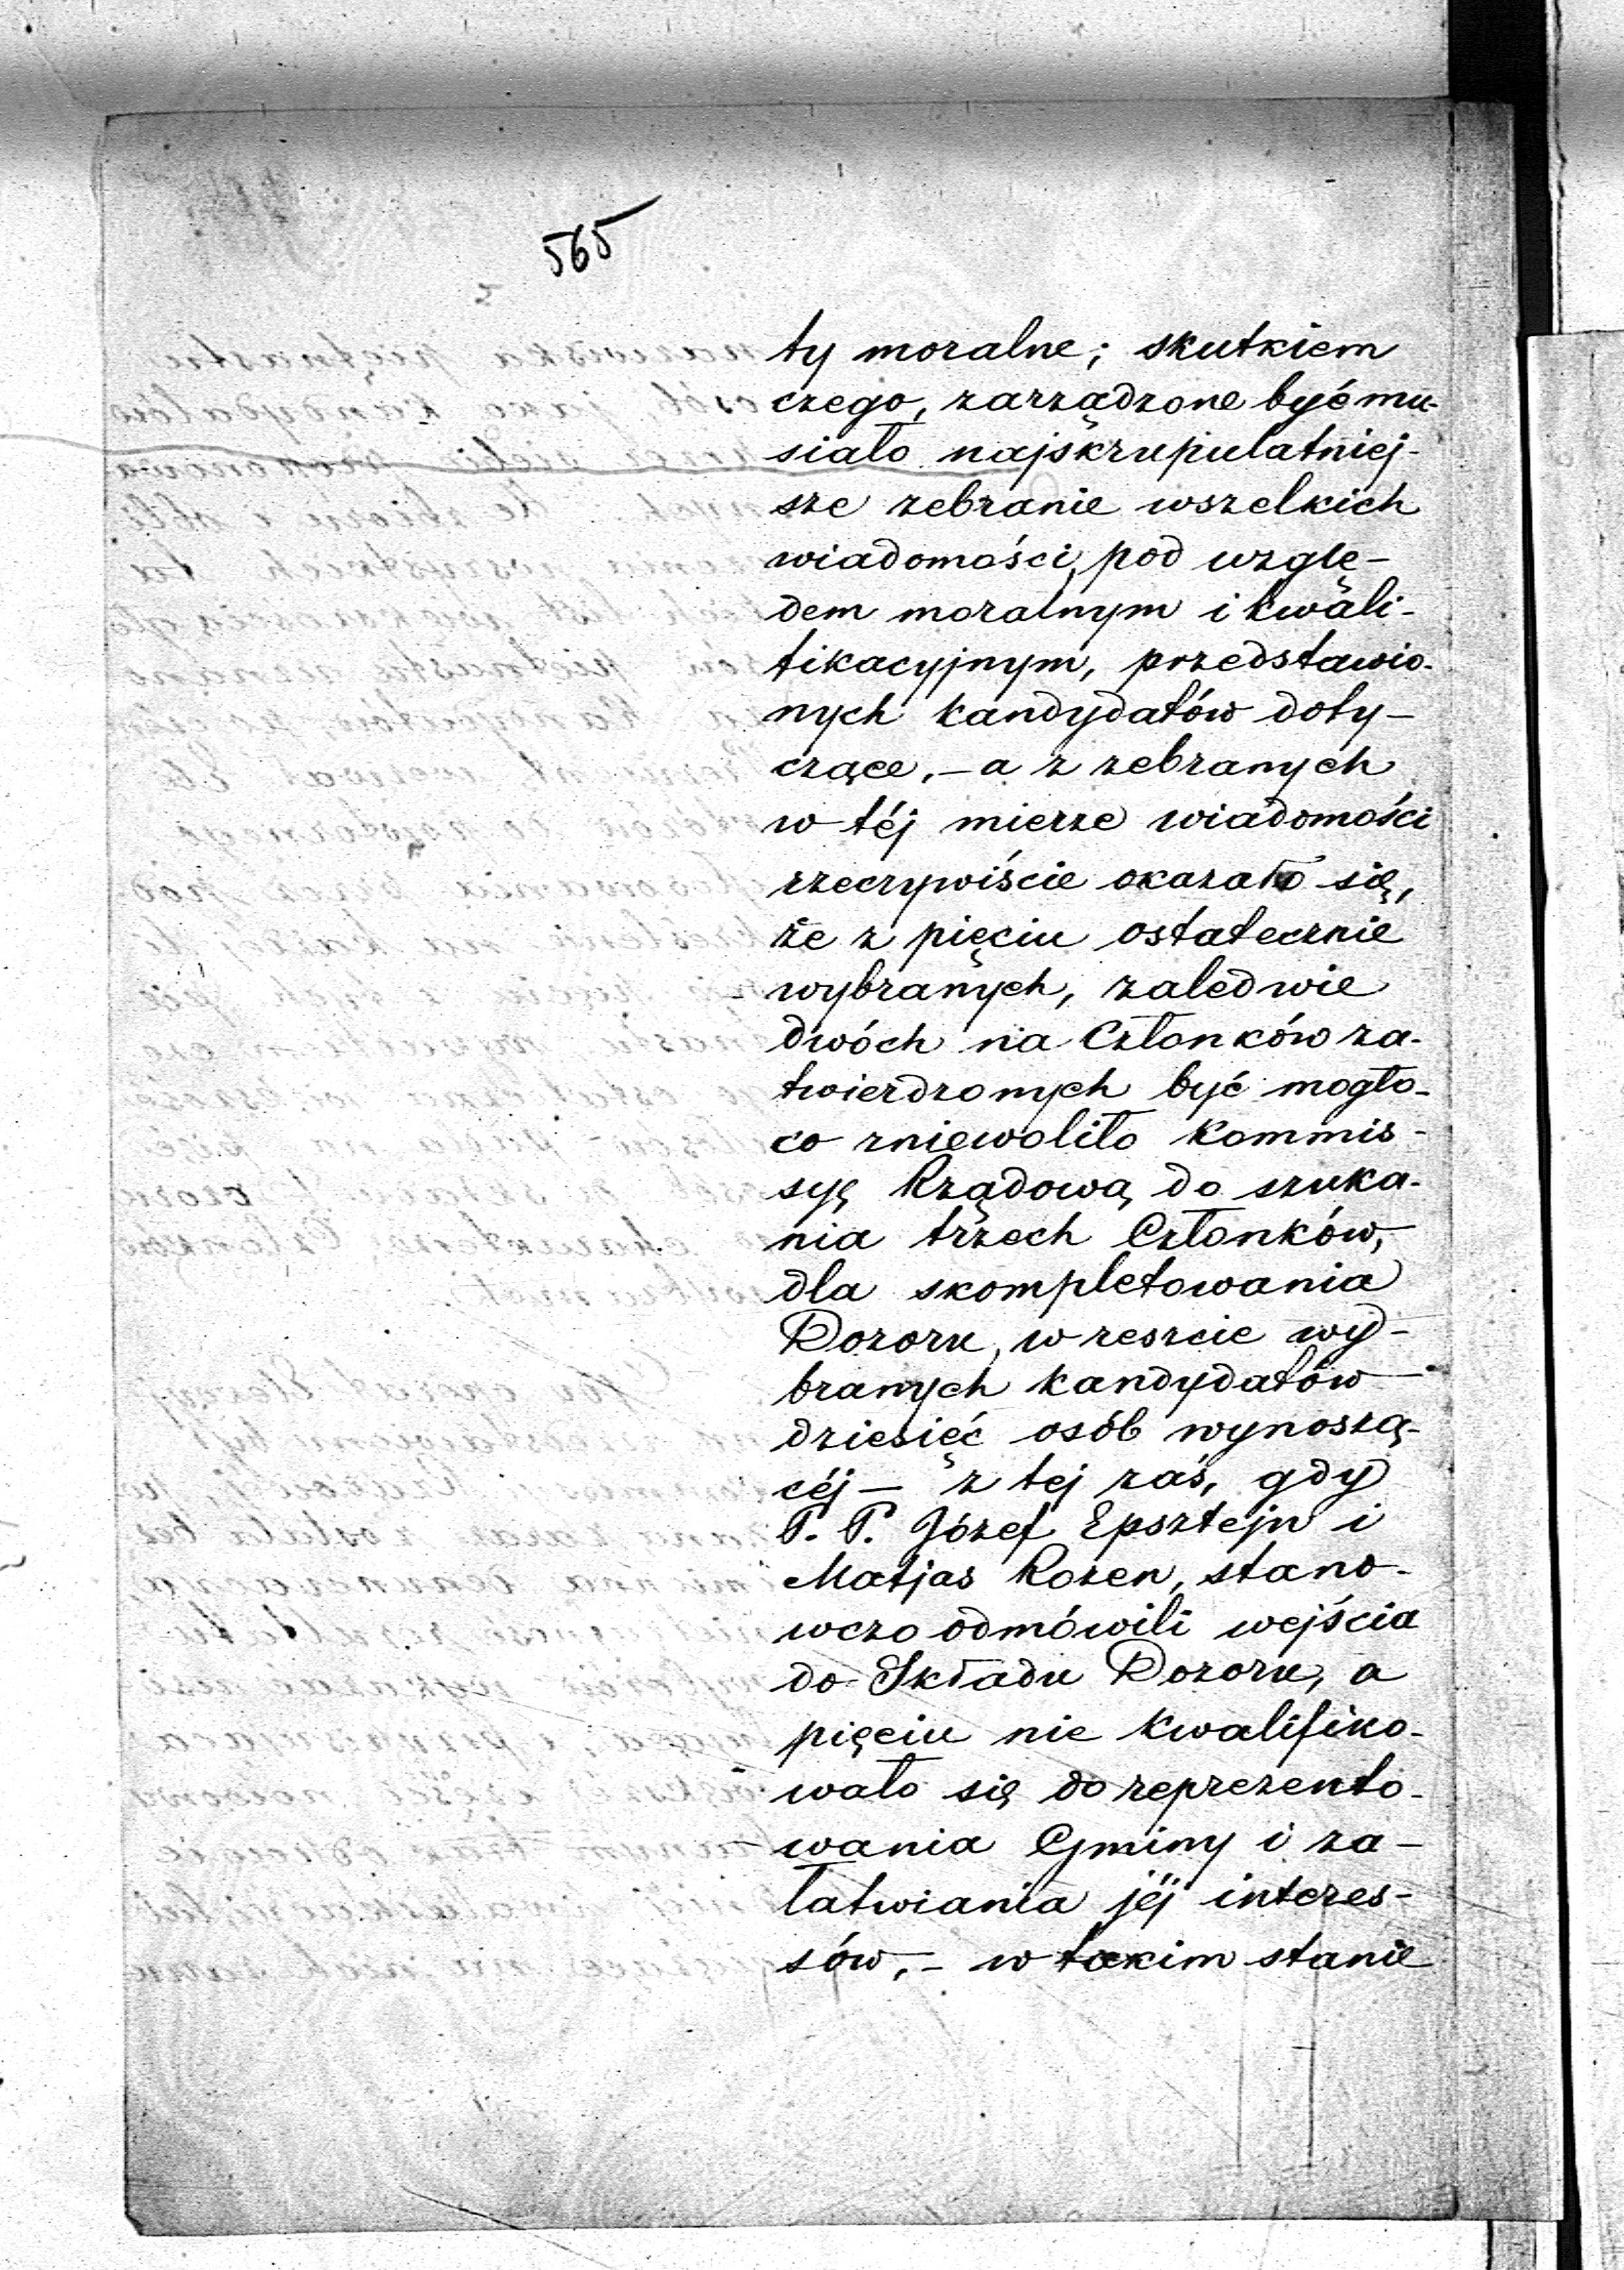 565
ty moralne; skutkiem
czego, zarządzone być mu-
siało najskrupulatniej-
sze zebranie wszelkich
wiadomości, pod wzglę-
dem moralnym i kwali-
fikacyjnym, przedstawio-
nych kandydatów doty-
czące, - a z zebranych
w téj mierze wiadomości
rzeczywiście okazało się,
że z pięciu ostatecznie
wybranych, zaledwie
dwóch na Członków za-
twierdzonych być mogło-
co zniewoliło Kommis-
syę Rządową do szuka-
nia trzech Członków,
dla skompletowania
Dozoru, w reszcie wy-
branych kandydatów
dziesięć osób wynoszą-
céj - z tej zaś, gdy
P. P. Józef Epsztejn i
Matjas Rozen, stano-
wczo odmówili wejścia
do Składu Dozoru, a
pięciu nie kwalifiko-
wało się do reprezento-
wania Gminy i za-
łatwiania jéj interes-
sów, - w takim stanie